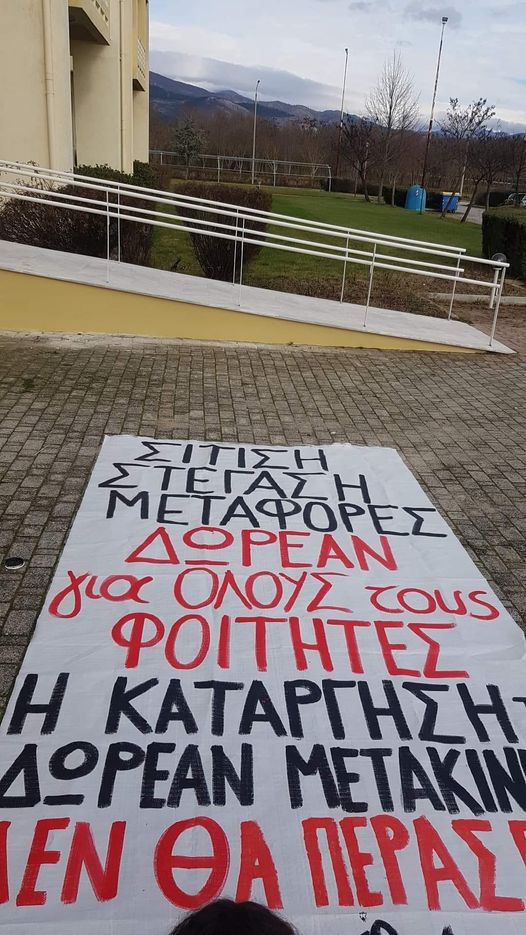 ΣΙΤΙΣΗ
ΣΤΕΓΑΣΗ
ΜΕΤΑΦΟΡΕΣ
ΔΩΡΕΑΝ
για ΌΛΟΥΣ τους
ΦΟΙΤΗΤΕΣ
Η ΚΑΤΑΡΓΗΣΗ
ΔΩΡΕΑΝ ΜΕΤΑΚΙΝ
ΕΝ ΘΑ ΠΕΡΑΣ